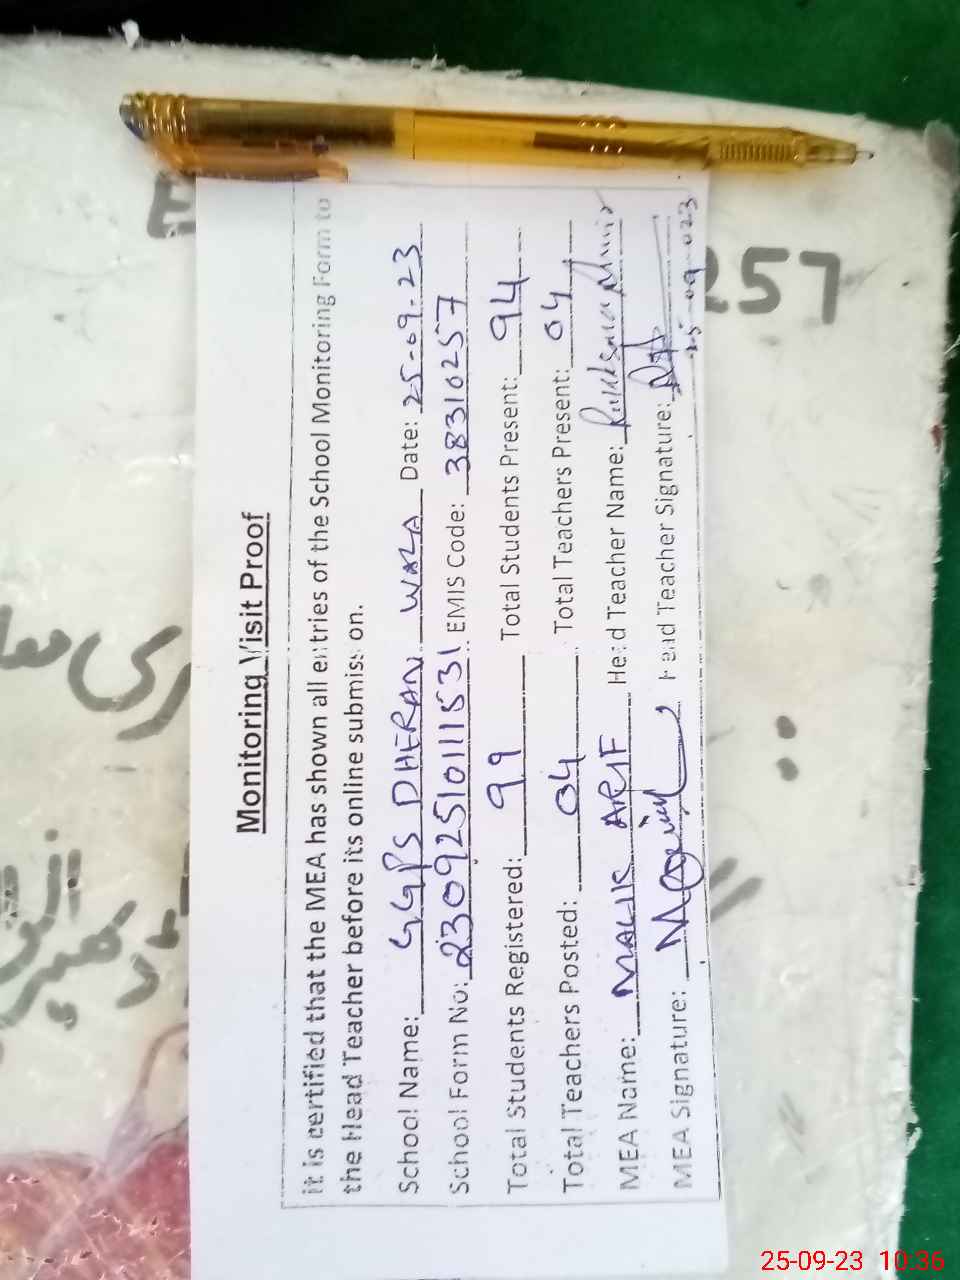 Monitoring Visit Proof
it is certified that the MEA has shown all entries of the School Monitoring Form to
the Head Teacher before its online submission.
School Name: GGPS DHERAN WALA Date: 25-09-23
School Form No: 230925101111531 EMIS Code: 38310257
Total Students Registered: 99 Total Students Present: 94
Total Teachers Posted: 04 Total Teachers Present: 04
MEA Name: MALIK ARIF Head Teacher Name:
MEA Signature: Head Teacher Signature:
25-09-023
257
25-09-23 10:36